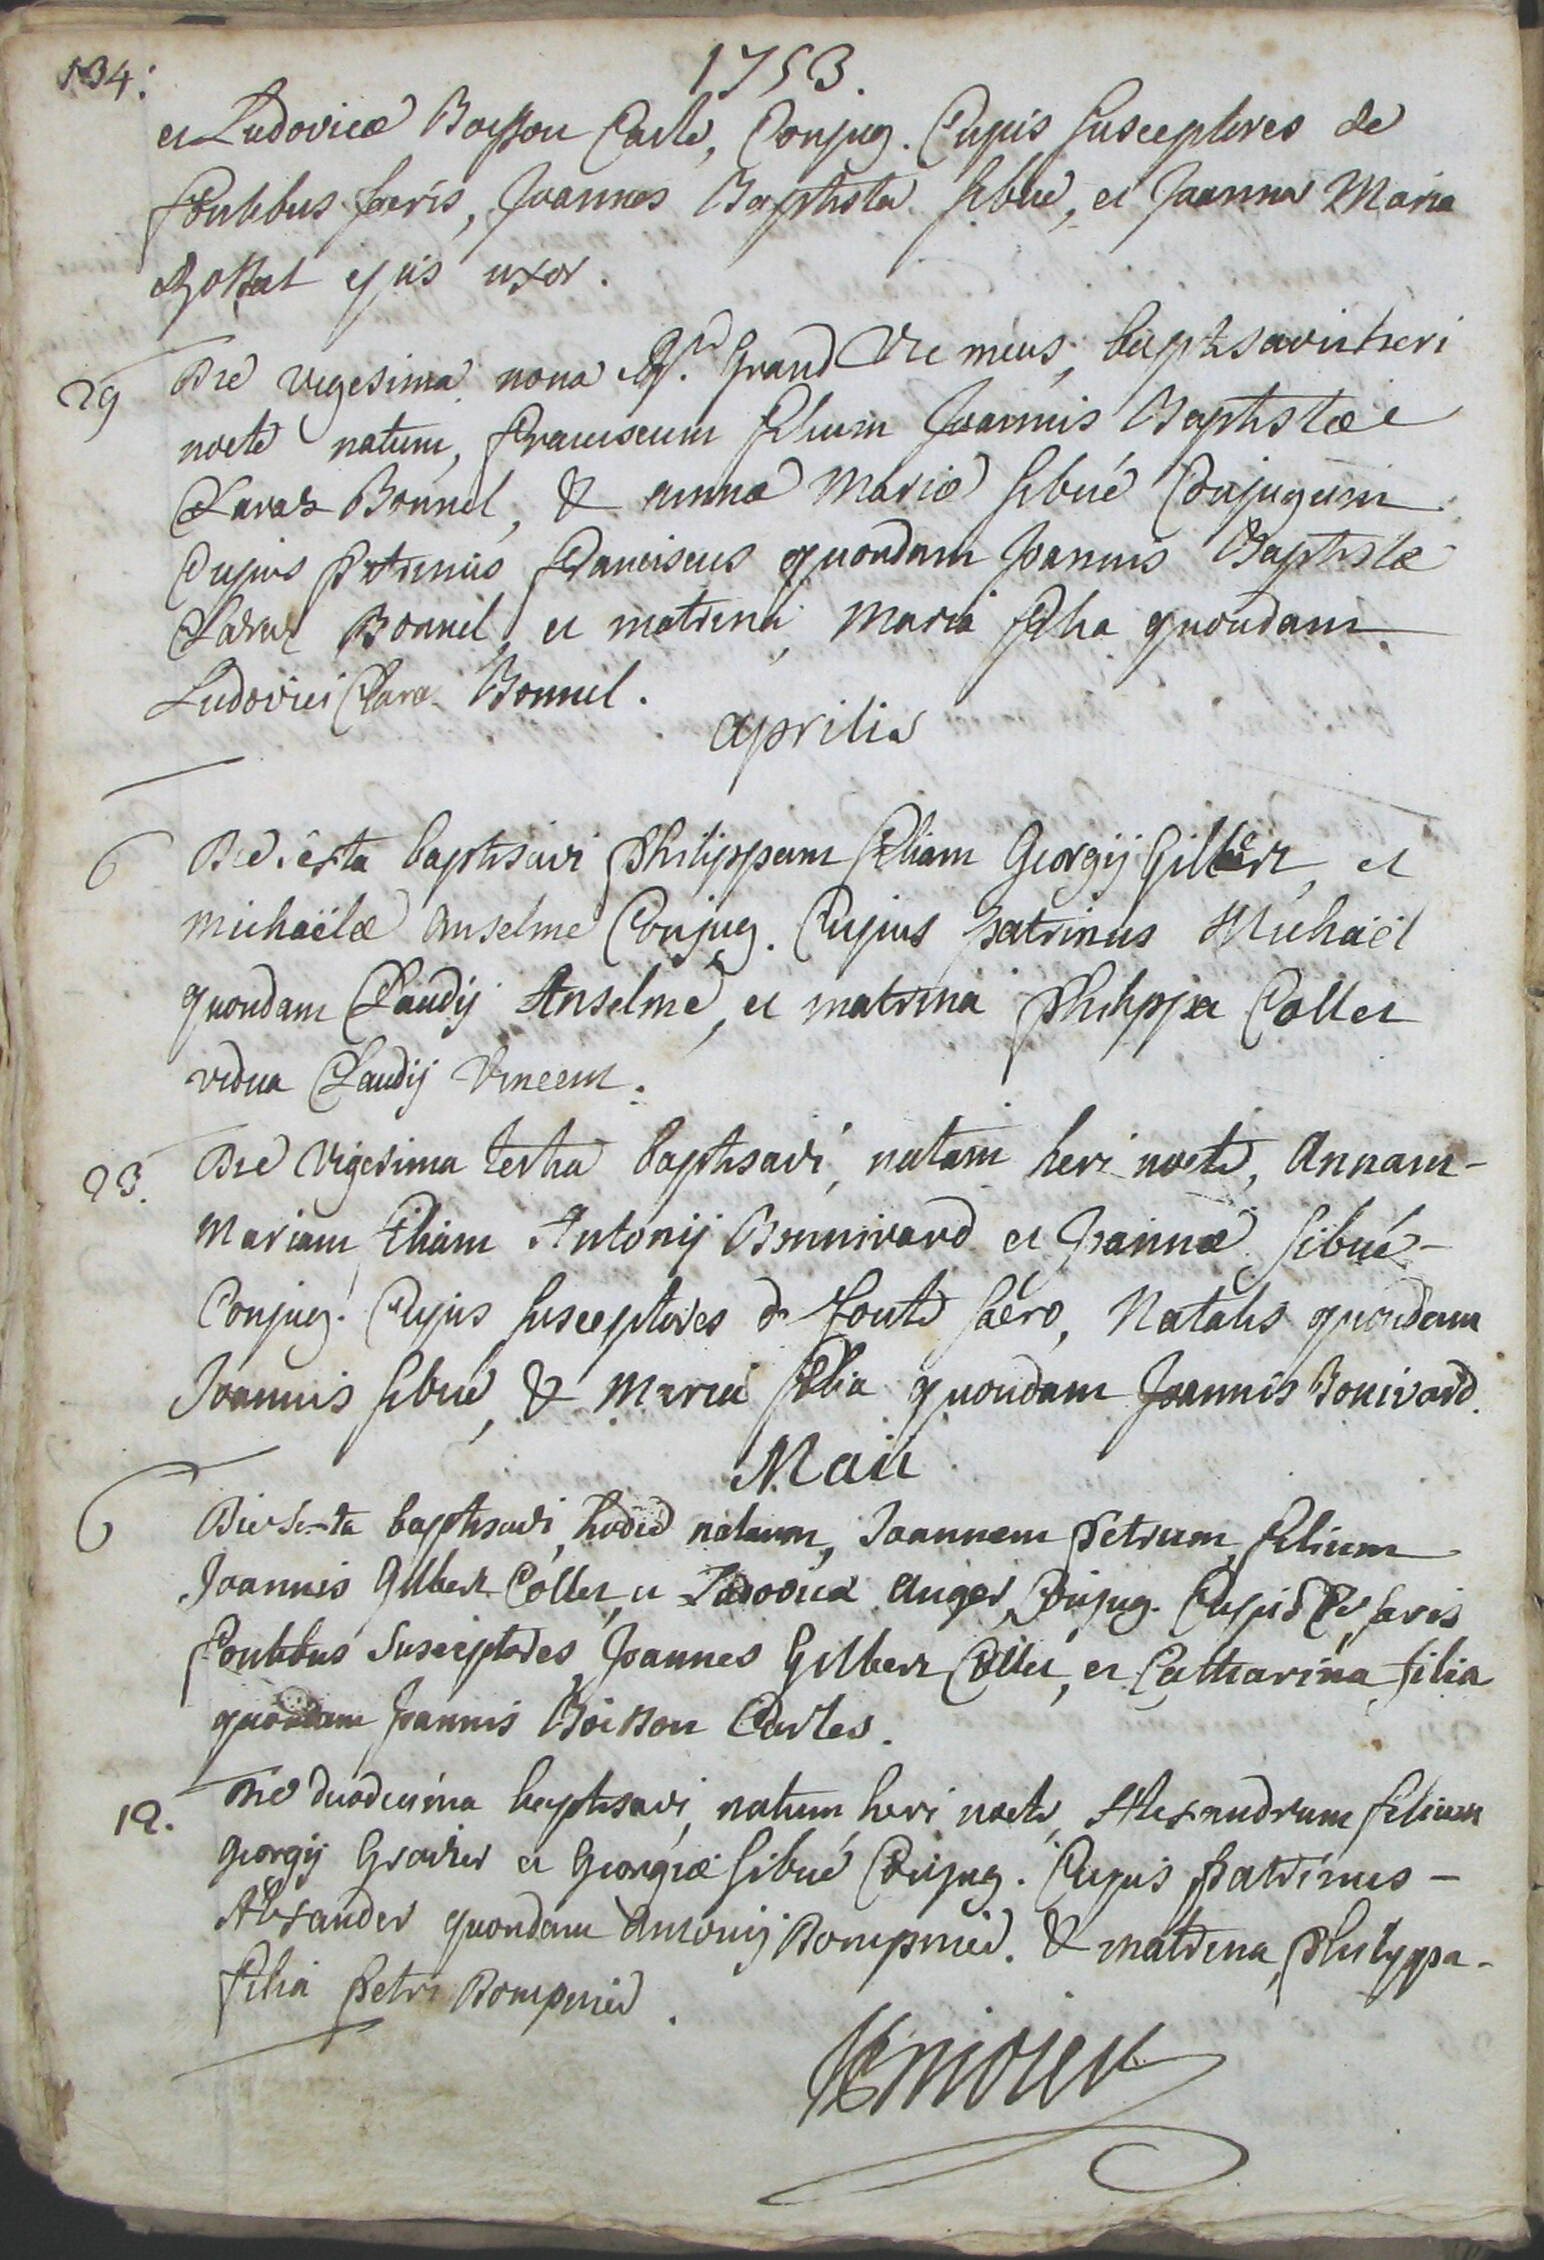 134.
1753.
et Ludovicæ Boisson Carle, Conjug. Cujus susceptores de
fontibus sacris, Joannes Baptista Sibué, et Joanna Maria
ejus uxor.
29 Die vigesima nona Grand Vic meus, baptisavit heri
nocte natum, Franciscum filium Joannis Baptistæ
Claraz Bonnel, & annæ Mariæ Sibué Conjugum
Cujus Patrinus Franciscus quondam Joannis Baptistæ
Claraz Bonnel, et matrina, Maria filia quondam
Ludovici Claraz Bonnel.
aprilis
6 Die sexta baptisavi Philippam filiam Georgij Gilbert, et
Michaëlæ Anselme Conjug. Cujus patrinus Michaël
quondam Claudij Anselme, et matrina Philippa Collet
vidua Claudij Vincent.
23. Die vigesima tertia baptisavi, natam heri nocte, Annam-
Mariam filiam Antonij Bonnivard et Joannæ Sibué-
Conjug. Cujus susceptores de fonte sacro, Natalis quondam
Joannis Sibué, & Maria filia quondam Joannis Bonivard.
Maii
6 Die sexta baptisavi, hodie natum, Joannem Petrum, filium
Joannis Gilbert Collet, et Ludovicæ Auger, Conjug. Cujus de sacris
fontibus susceptores, Joannes Gilbert Collet, et Catharina filia
quondam Joannis Boisson Carles.
12. Die duodecima baptisavi, natum heri nocte, Alexandrum filium
Georgij Gravier et Georgiæ Sibué Conjug. Cujus patrinus-
Alexander quondam Antonij Rompnied. & matrina, Philippa-
filia Petri Rompnied.